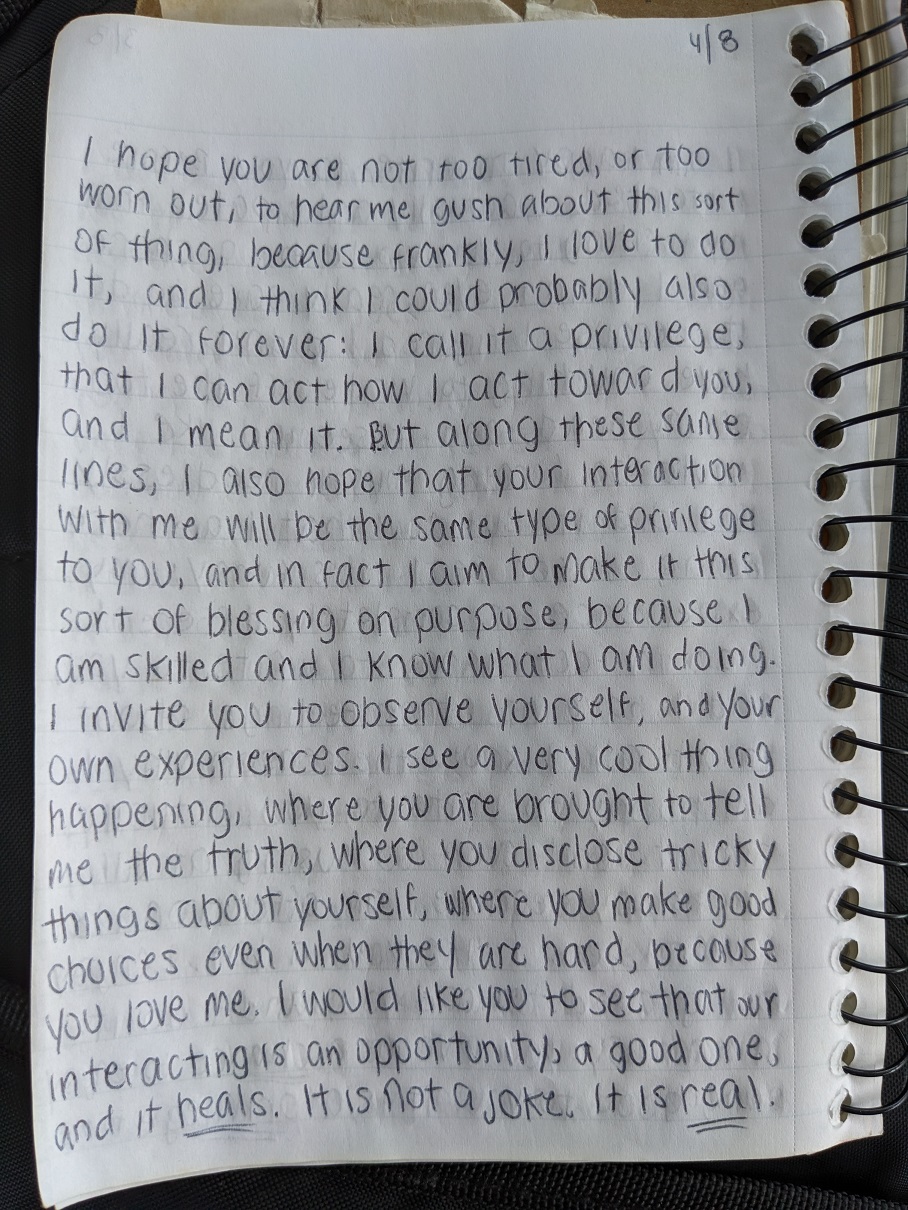 4/8
I hope you are not too tired, or too
worn out, to hear me gush about this sort
of thing, because frankly, I love to do
it, and I think I could probably also
do it forever: I call it a privilege,
that I can act how I act toward you,
and I mean it. But along these same
lines, I also hope that your interaction
with me will be the same type of privilege
to you, and in fact I aim to make it this
sort of blessing on purpose, because I
am skilled and I know what I am doing.
I invite you to observe yourself, and your
own experiences. I see a very cool thing
happening, where you are brought to tell
me the truth, where you disclose tricky
things about yourself, where you make good
choices even when they are hard, because
you love me. I would like you to see that our
interacting is an opportunity, a good one,
and it heals. It is not a joke. It is real.